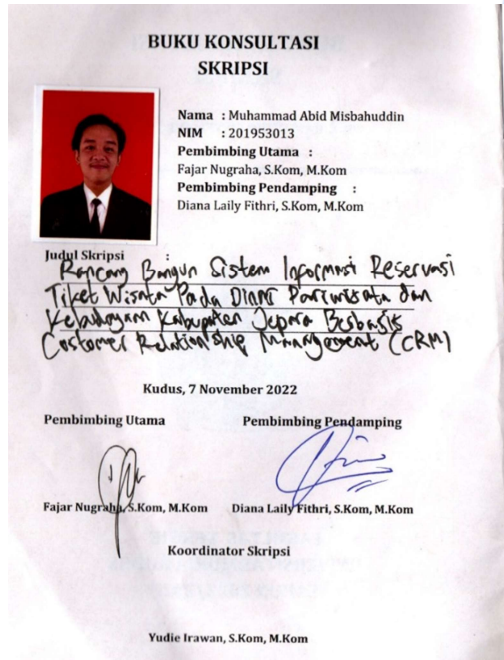 BUKU KONSULTASI
SKRIPSI
Nama : Muhammad Abid Misbahuddin
NIM : 201953013
Pembimbing Utama :
Fajar Nugraha, S.Kom, M.Kom
Pembimbing Pendamping :
Diana Laily Fithri, S.Kom, M.Kom
Judul Skripsi :
Rancang Bangun Sistem Informasi Reservasi
Tiket Wisata Pada Dinas Pariwisata dan
Kebudayaan Kabupaten Jepara Berbasis
Costomer Relationship Management (CRM)
Kudus, 7 November 2022
Pembimbing Utama Pembimbing Pendamping
Fajar Nugraha, S.Kom, M.Kom Diana Laily Fithri, S.Kom, M.Kom
Koordinator Skripsi
Yudie Irawan, S.Kom, M.Kom